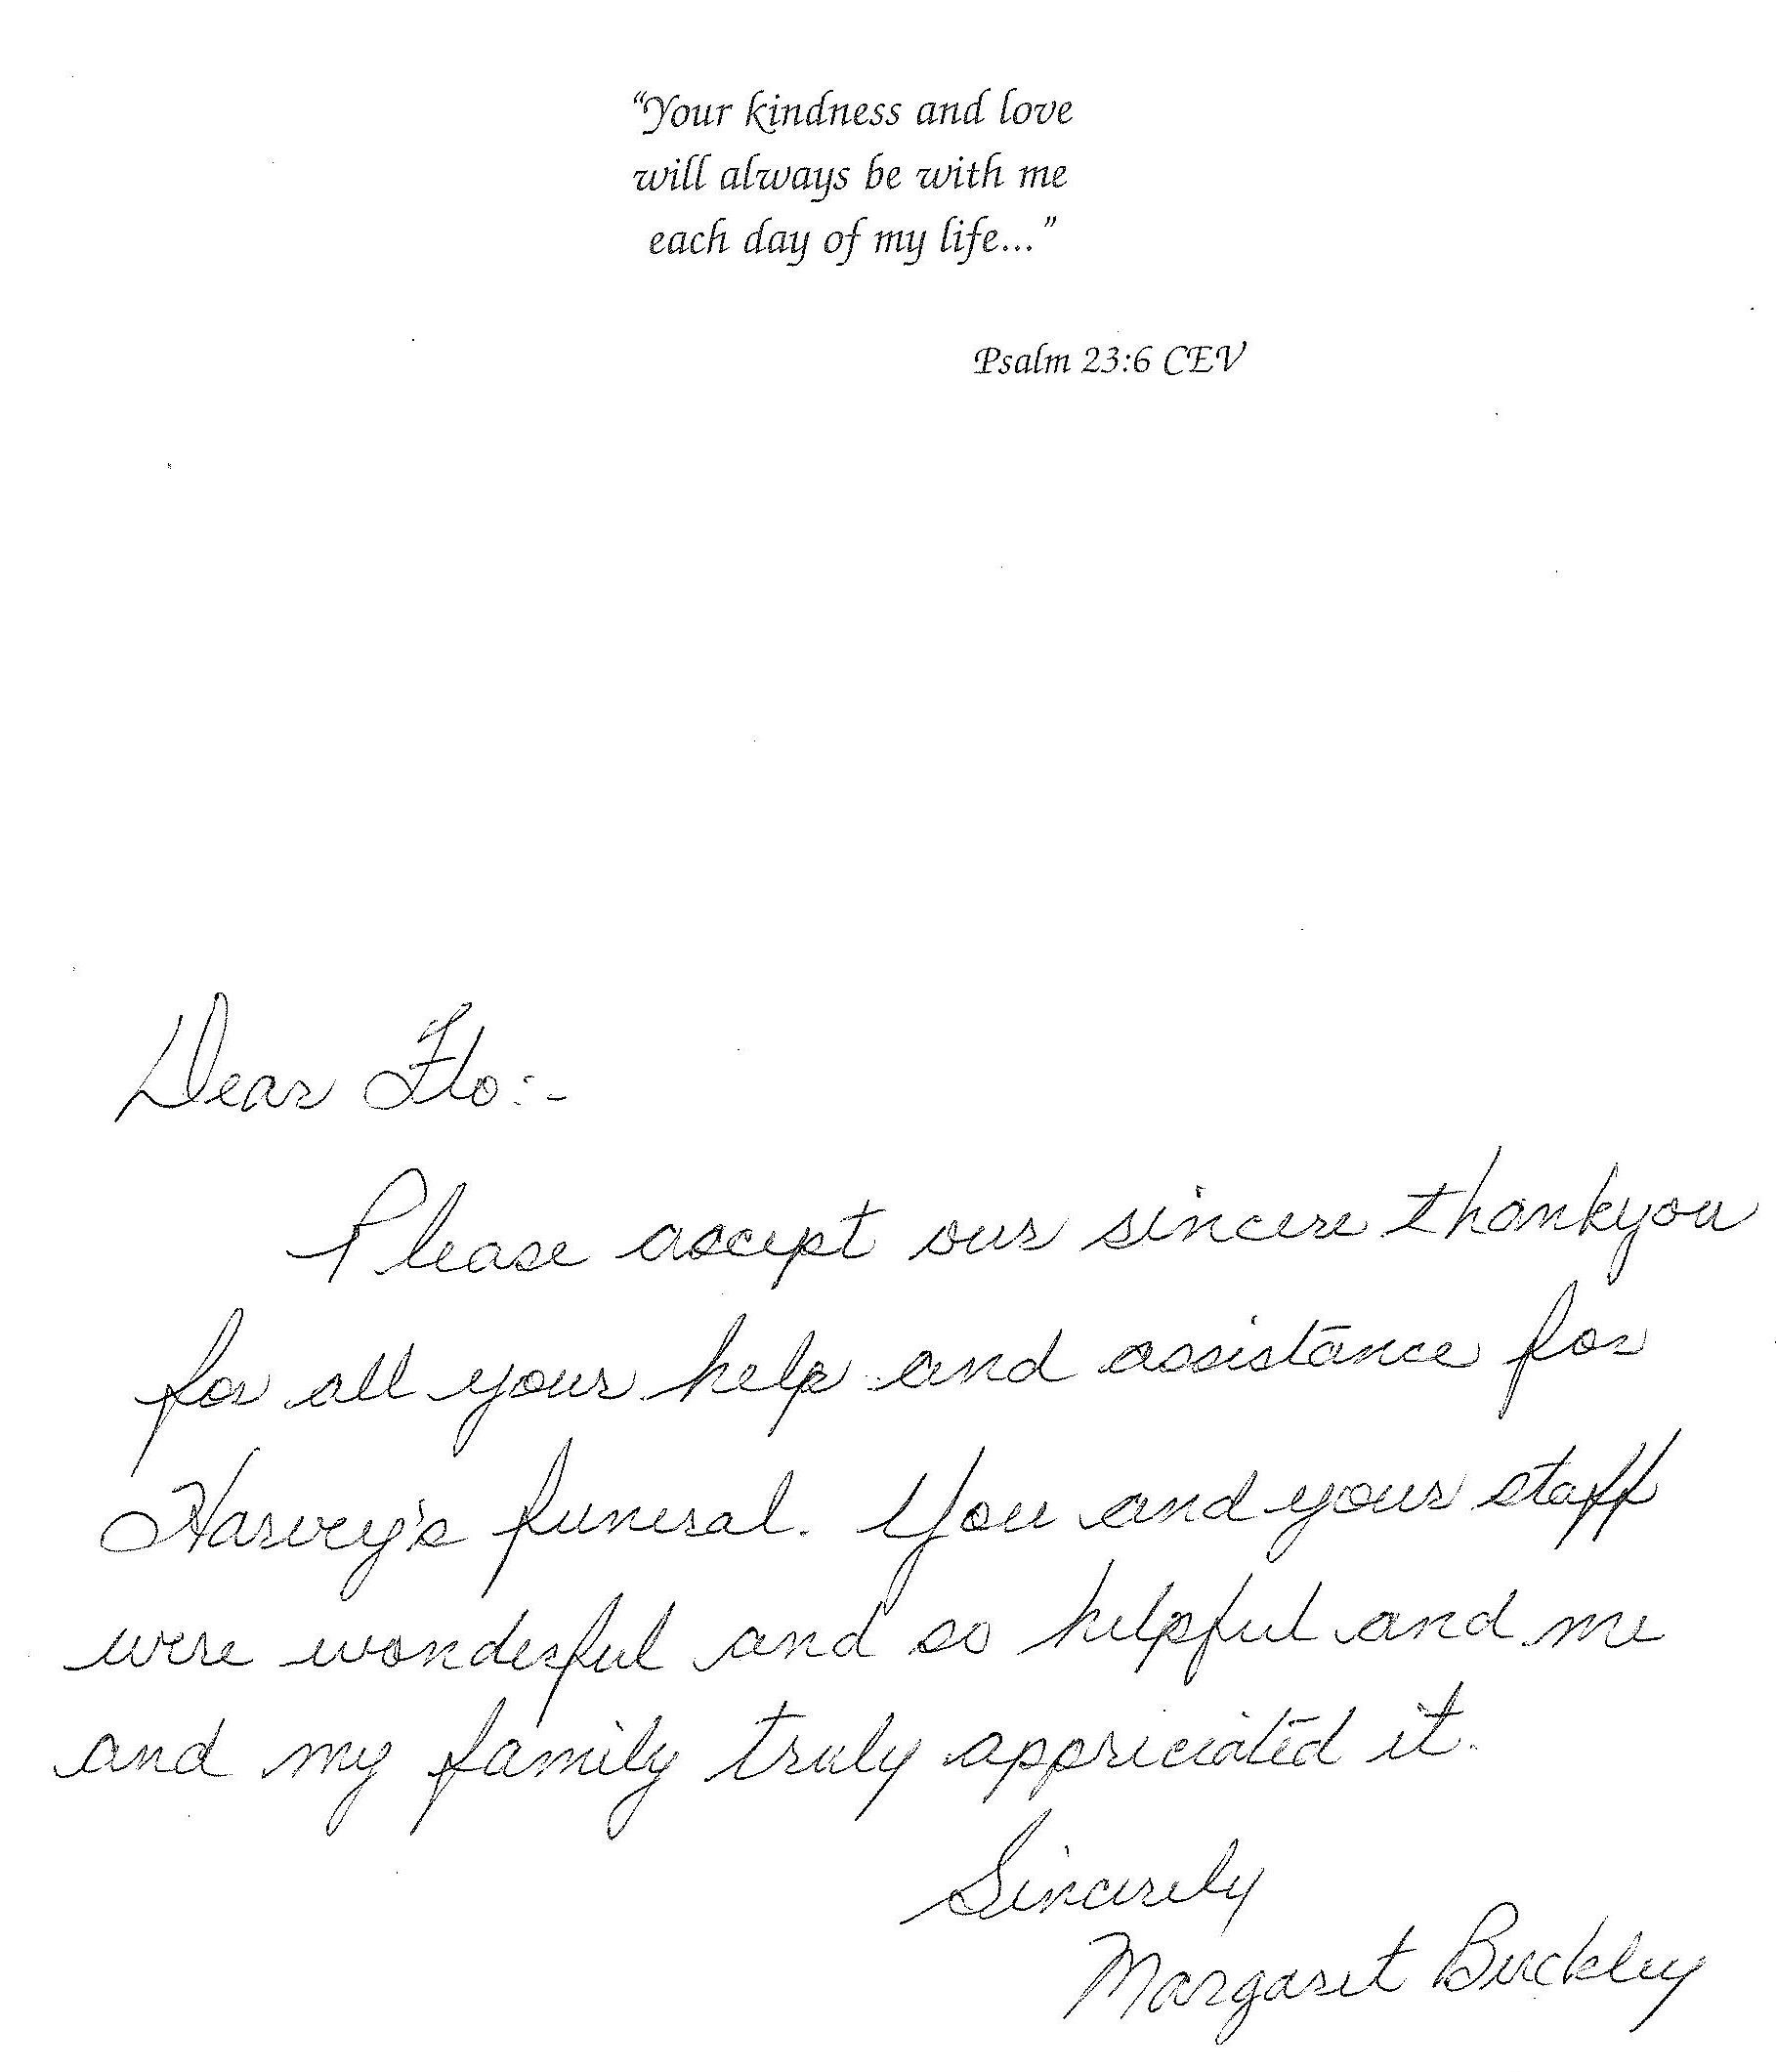 “Your kindness and love
will always be with me
each day of my life...”
Psalm 23:6 CEV
Dear Flo:-
Please accept our sincere thankyou
for all your help and assistance for
Harvey's funeral. You and your staff
were wonderful and so helpful and me
and my family truly appriciated it.
Sincerely
Margaret Buckley